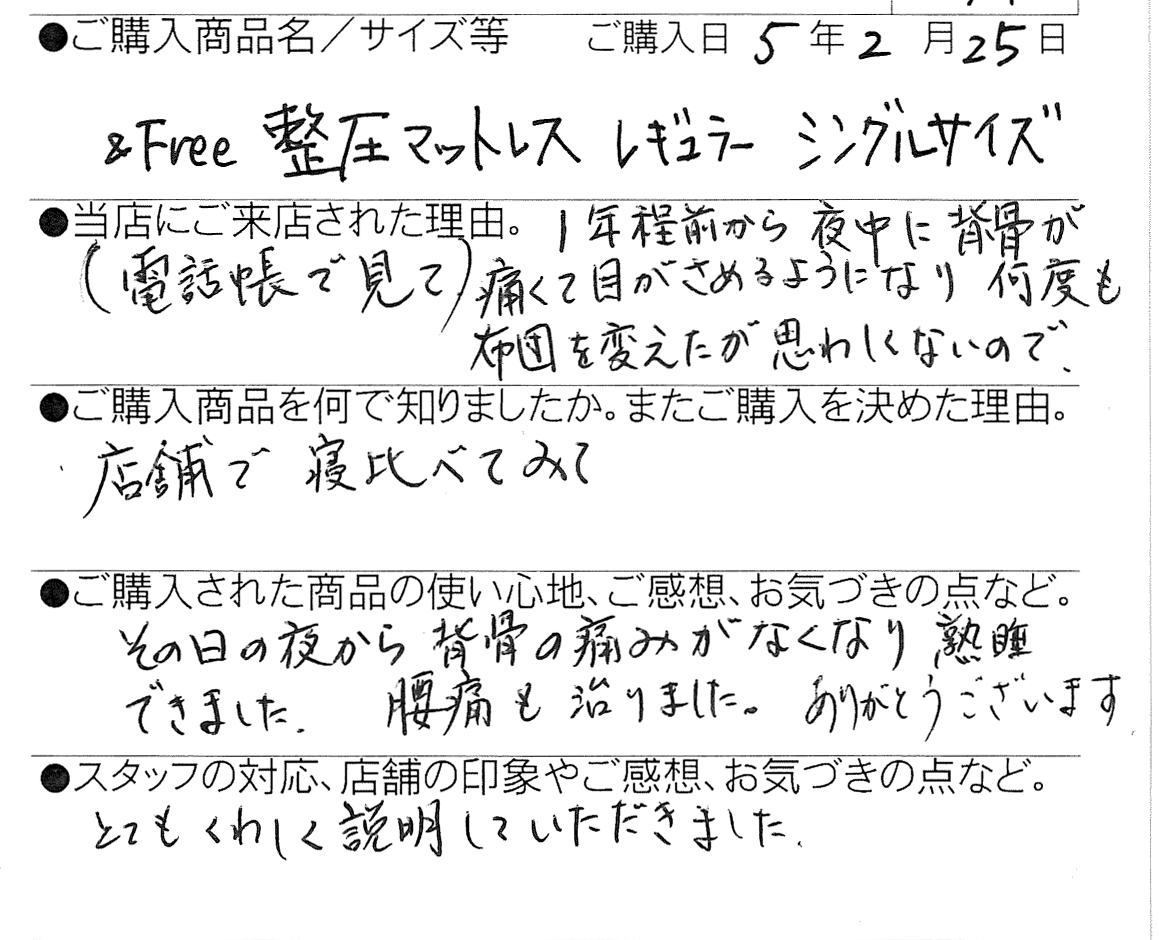 ●ご購入商品名／サイズ等　ご購入日 5年2月25日
&Free 整圧マットレス レギュラー シングルサイズ
●当店にご来店された理由。1年程前から夜中に背骨が
(電話帳で見て) 痛くて目がさめるようになり 何度も
布団を変えたが思わしくないので、
●ご購入商品を何で知りましたか。またご購入を決めた理由。
店舗で 寝比べてみて
●ご購入された商品の使い心地、ご感想、お気づきの点など。
その日の夜から背骨の痛みがなくなり 熟睡
できました。 腰痛も治りました。 ありがとうございます
●スタッフの対応、店舗の印象やご感想、お気づきの点など。
とてもくわしく説明していただきました。